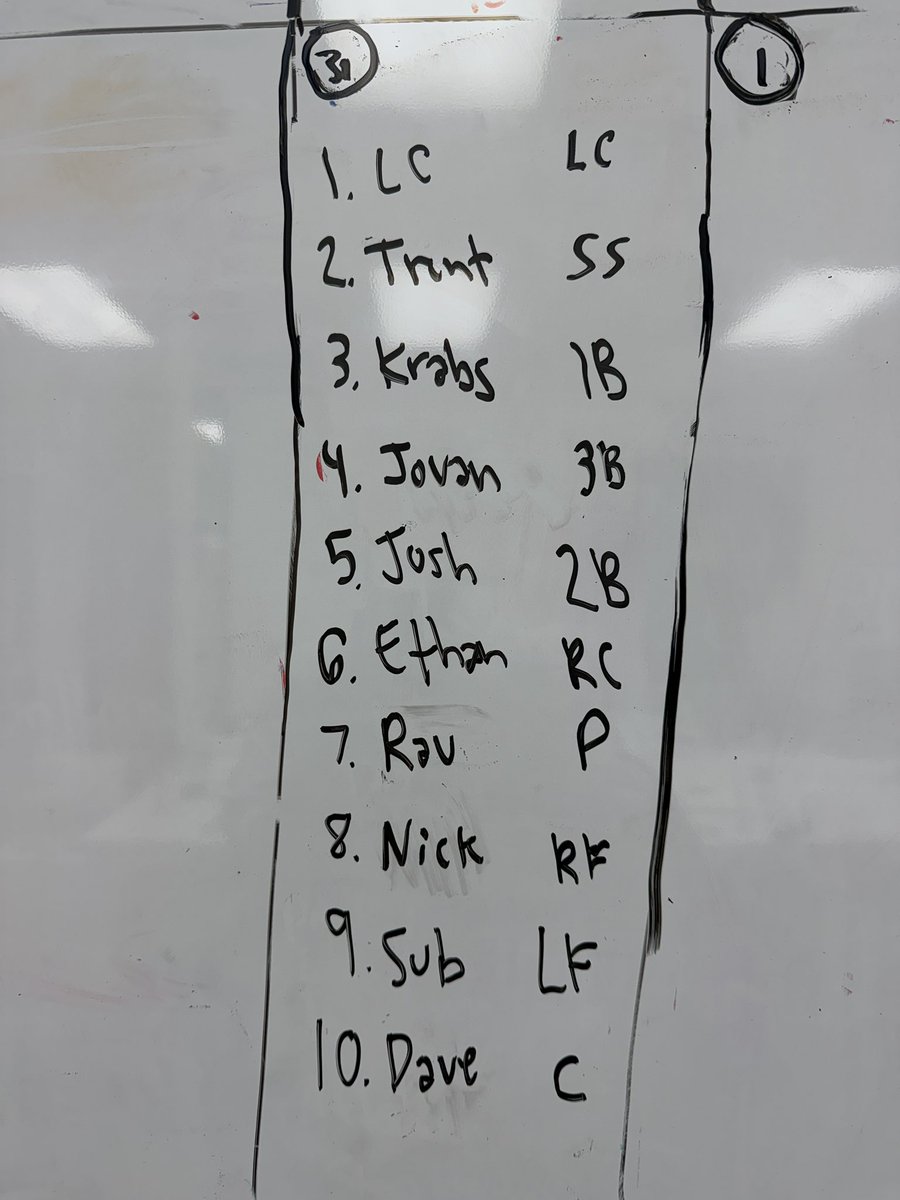 1
1. LC LC
2. Trent SS
3. Krabs 1B
4. Jovan 3B
5. Josh 2B
6. Ethan RC
7. Rav P
8. Nick RF
9. Sub LF
10. Dave C